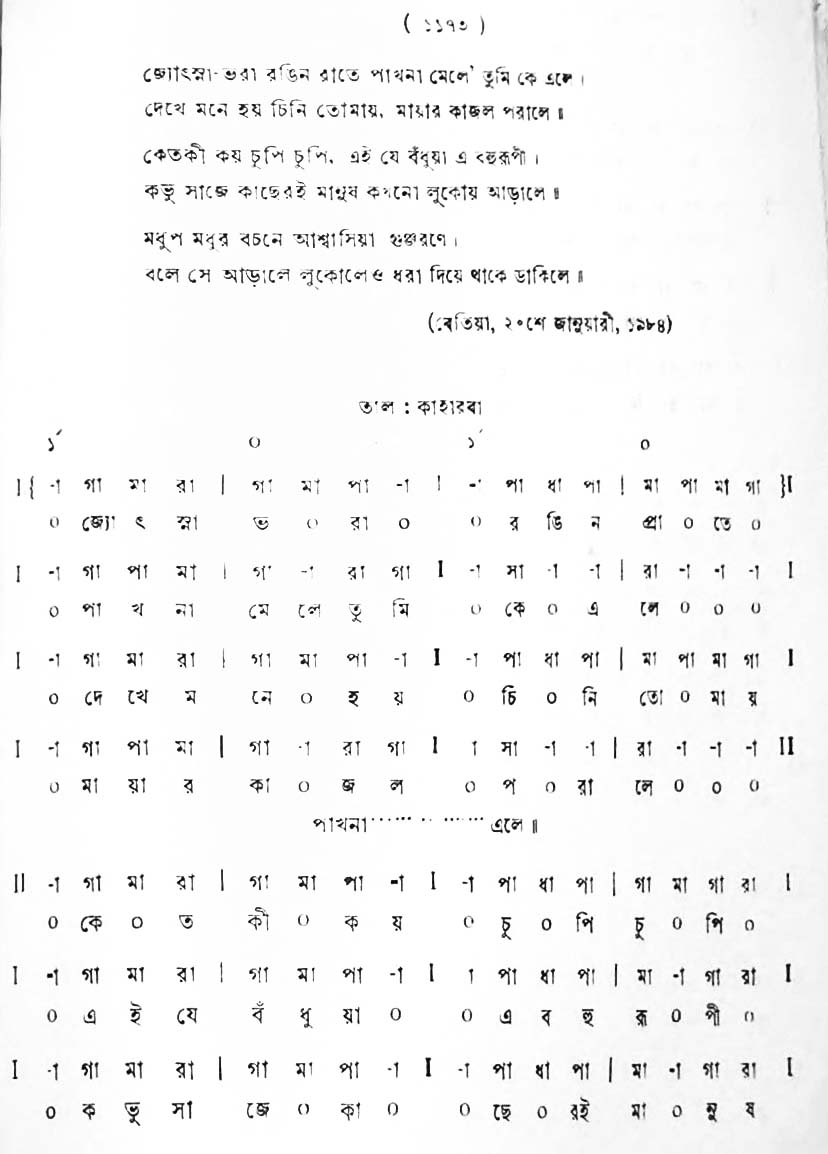 ( ১১৭৩ )
জ্যোৎস্না-ভরা রঙিন রাতে পাখনা মেলে' তুমি কে এলে।
দেখে মনে হয় চিনি তোমায়, মায়ার কাজল পরালে॥
কেতকী কয় চুপি চুপি, এই যে বঁধুয়া এ বহুরূপী।
কভু সাজে কাছেরই মানুষ কখনো লুকোয় আড়ালে॥
মধুপ মধুর বচনে আশ্বাসিয়া গুঞ্জরণে।
বলে সে আড়ালে লুকোলেও ধরা দিয়ে থাকে ডাকিলে॥
(বেতিয়া, ২০শে জানুয়ারী, ১৯৮৪)
তাল : কাহারবা
১´ ০ ১´ ০
I{ -া গা মা রা | গা মা পা -া | -া পা ধা পা | মা পা মা গা }I
০ জ্যো ৎ স্না ভ ০ রা ০ ০ র ঙি ন প্রা ০ তে ০
I -া গা পা মা | গা -া রা গা I -া সা -া -া | রা -া -া -া I
০ পা খ না মে লে তু মি ০ কে ০ এ লে ০ ০ ০
I -া গা মা রা | গা মা পা -া I -া পা ধা পা | মা পা মা গা I
০ দে খে ম নে ০ হ য় ০ চি ০ নি তো ০ মা য়
I -া গা পা মা | গা -া রা গা I া সা -া -া | রা -া -া -া II
০ মা য়া র কা ০ জ ল ০ প ০ রা লে ০ ০ ০
পাখনা ············ এলে॥
II -া গা মা রা | গা মা পা -া I -া পা ধা পা | গা মা গা রা I
০ কে ০ ত কী ০ ক য় ০ চু ০ পি চু ০ পি ০
I -া গা মা রা | গা মা পা -া I া পা ধা পা | মা -া গা রা I
০ এ ই যে বঁ ধু য়া ০ ০ এ ব হু রূ ০ পী ০
I -া গা মা রা | গা মা পা -া I -া পা ধা পা | মা -া গা রা I
০ ক ভু সা জে ০ কা ০ ০ ছে ০ রই মা ০ নু ষ